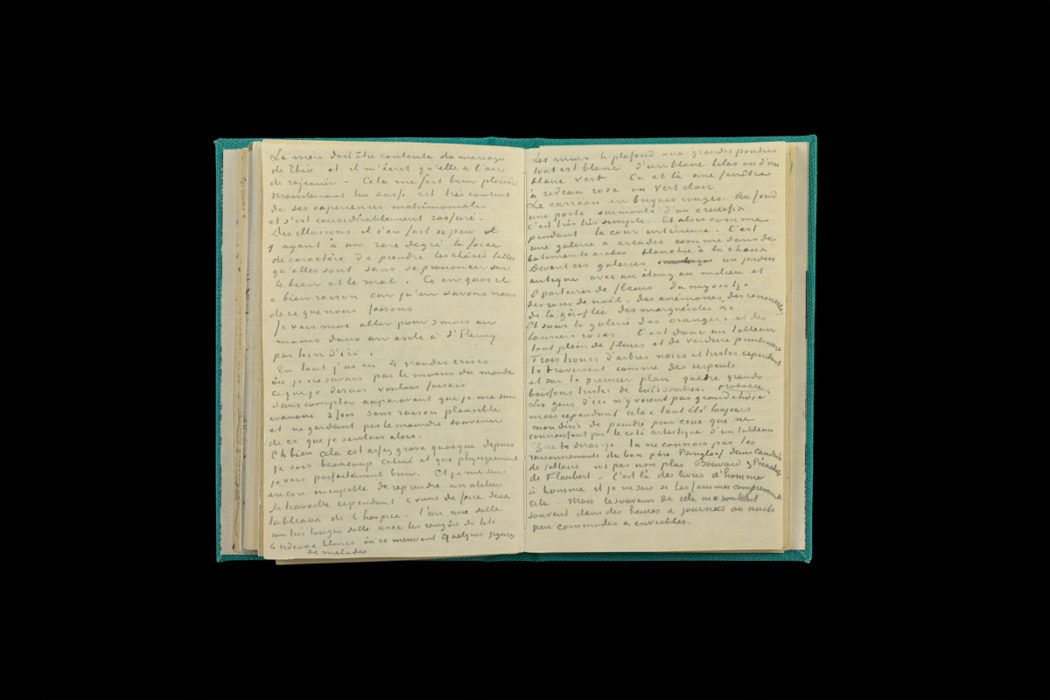 La mère doit être contente du mariage
de Theo et il m'écrit qu'elle a l'air
de rajeunir – Cela me fait bien plaisir
Maintenant lui aussi est très content
de ses expériences matrimoniales
et s'est considérablement rassuré.
Des illusions il s'en fait si peu et
y ayant à un rare degré la force
de caractère de prendre les choses telles
qu'elles sont sans se prononcer sur
le bien et le mal. Ce en quoi il
a bien raison car qu'en savons nous
de ce que nous faisons
Je vais moi aller pour 3 mois au
moins dans un asile à St Remy
pas loin d'ici.
En tout j'ai eu 4 grandes crises
où je ne savais pas le moins du monde
ce que je disais voulais faisais
Sans compter auparavant que je me suis
évanoui 3 fois sans raison plausible
et ne gardant pas le moindre souvenir
de ce que je sentais alors.
Eh bien cela est assez grave quoique depuis
je sois beaucoup calmé et que physiquement
je vais parfaitement bien. Et je me sens
encore incapable de reprendre un atelier
Je travaille cependant & viens de faire deux
tableaux de l'hospice. l'un une salle
une très longue salle avec les rangées de lits
à rideaux blancs où se meuvent quelques figures
de malades
Les murs le plafond aux grandes poutres
tout est blanc d'un blanc lilas ou d'un
blanc vert Ça et là une fenêtre
à rideau rose ou vert clair
Le carreau en briques rouges. Au fond
une porte surmonté d'un crucifix
c'est très très simple. Et alors comme
pendant la cour intérieure – C'est
une galerie à arcades comme dans des
batiments arabes blanchie à la chaux
Devant ces galeries un jardin
antique avec un étang au milieu et
8 parterres de fleurs du myosotys
des roses de noel, des anémones, des renoncules,
de la giroflée des marguerites &c.
Et sous la galerie des orangers et des
lauriers roses. C'est donc un tableau
tout plein de fleurs et de verdure printanière
Trois troncs d'arbres noirs et tristes cependant
le traversent comme des serpents
et sur le premier plan quatre grands
buissons tristes de buis sombres.
Les gens d'ici n'y voient pas grand chose probable.
mais cependant cela a tant été toujours
mon désir de peindre pour ceux qui ne
connaissent pas le coté artistique d'un tableau
Que te dirai-je tu ne connais pas les
raisonnements du bon père Pangloss dans Candide
de Voltaire ni pas non plus Bouvard & Pécuchet
de Flaubert – C'est là des livres d'homme
à homme et je ne sais si les femmes comprennent
cela. Mais le souvenir de cela me soutient
souvent dans des heures & journées ou nuits
peu commodes & enviables.